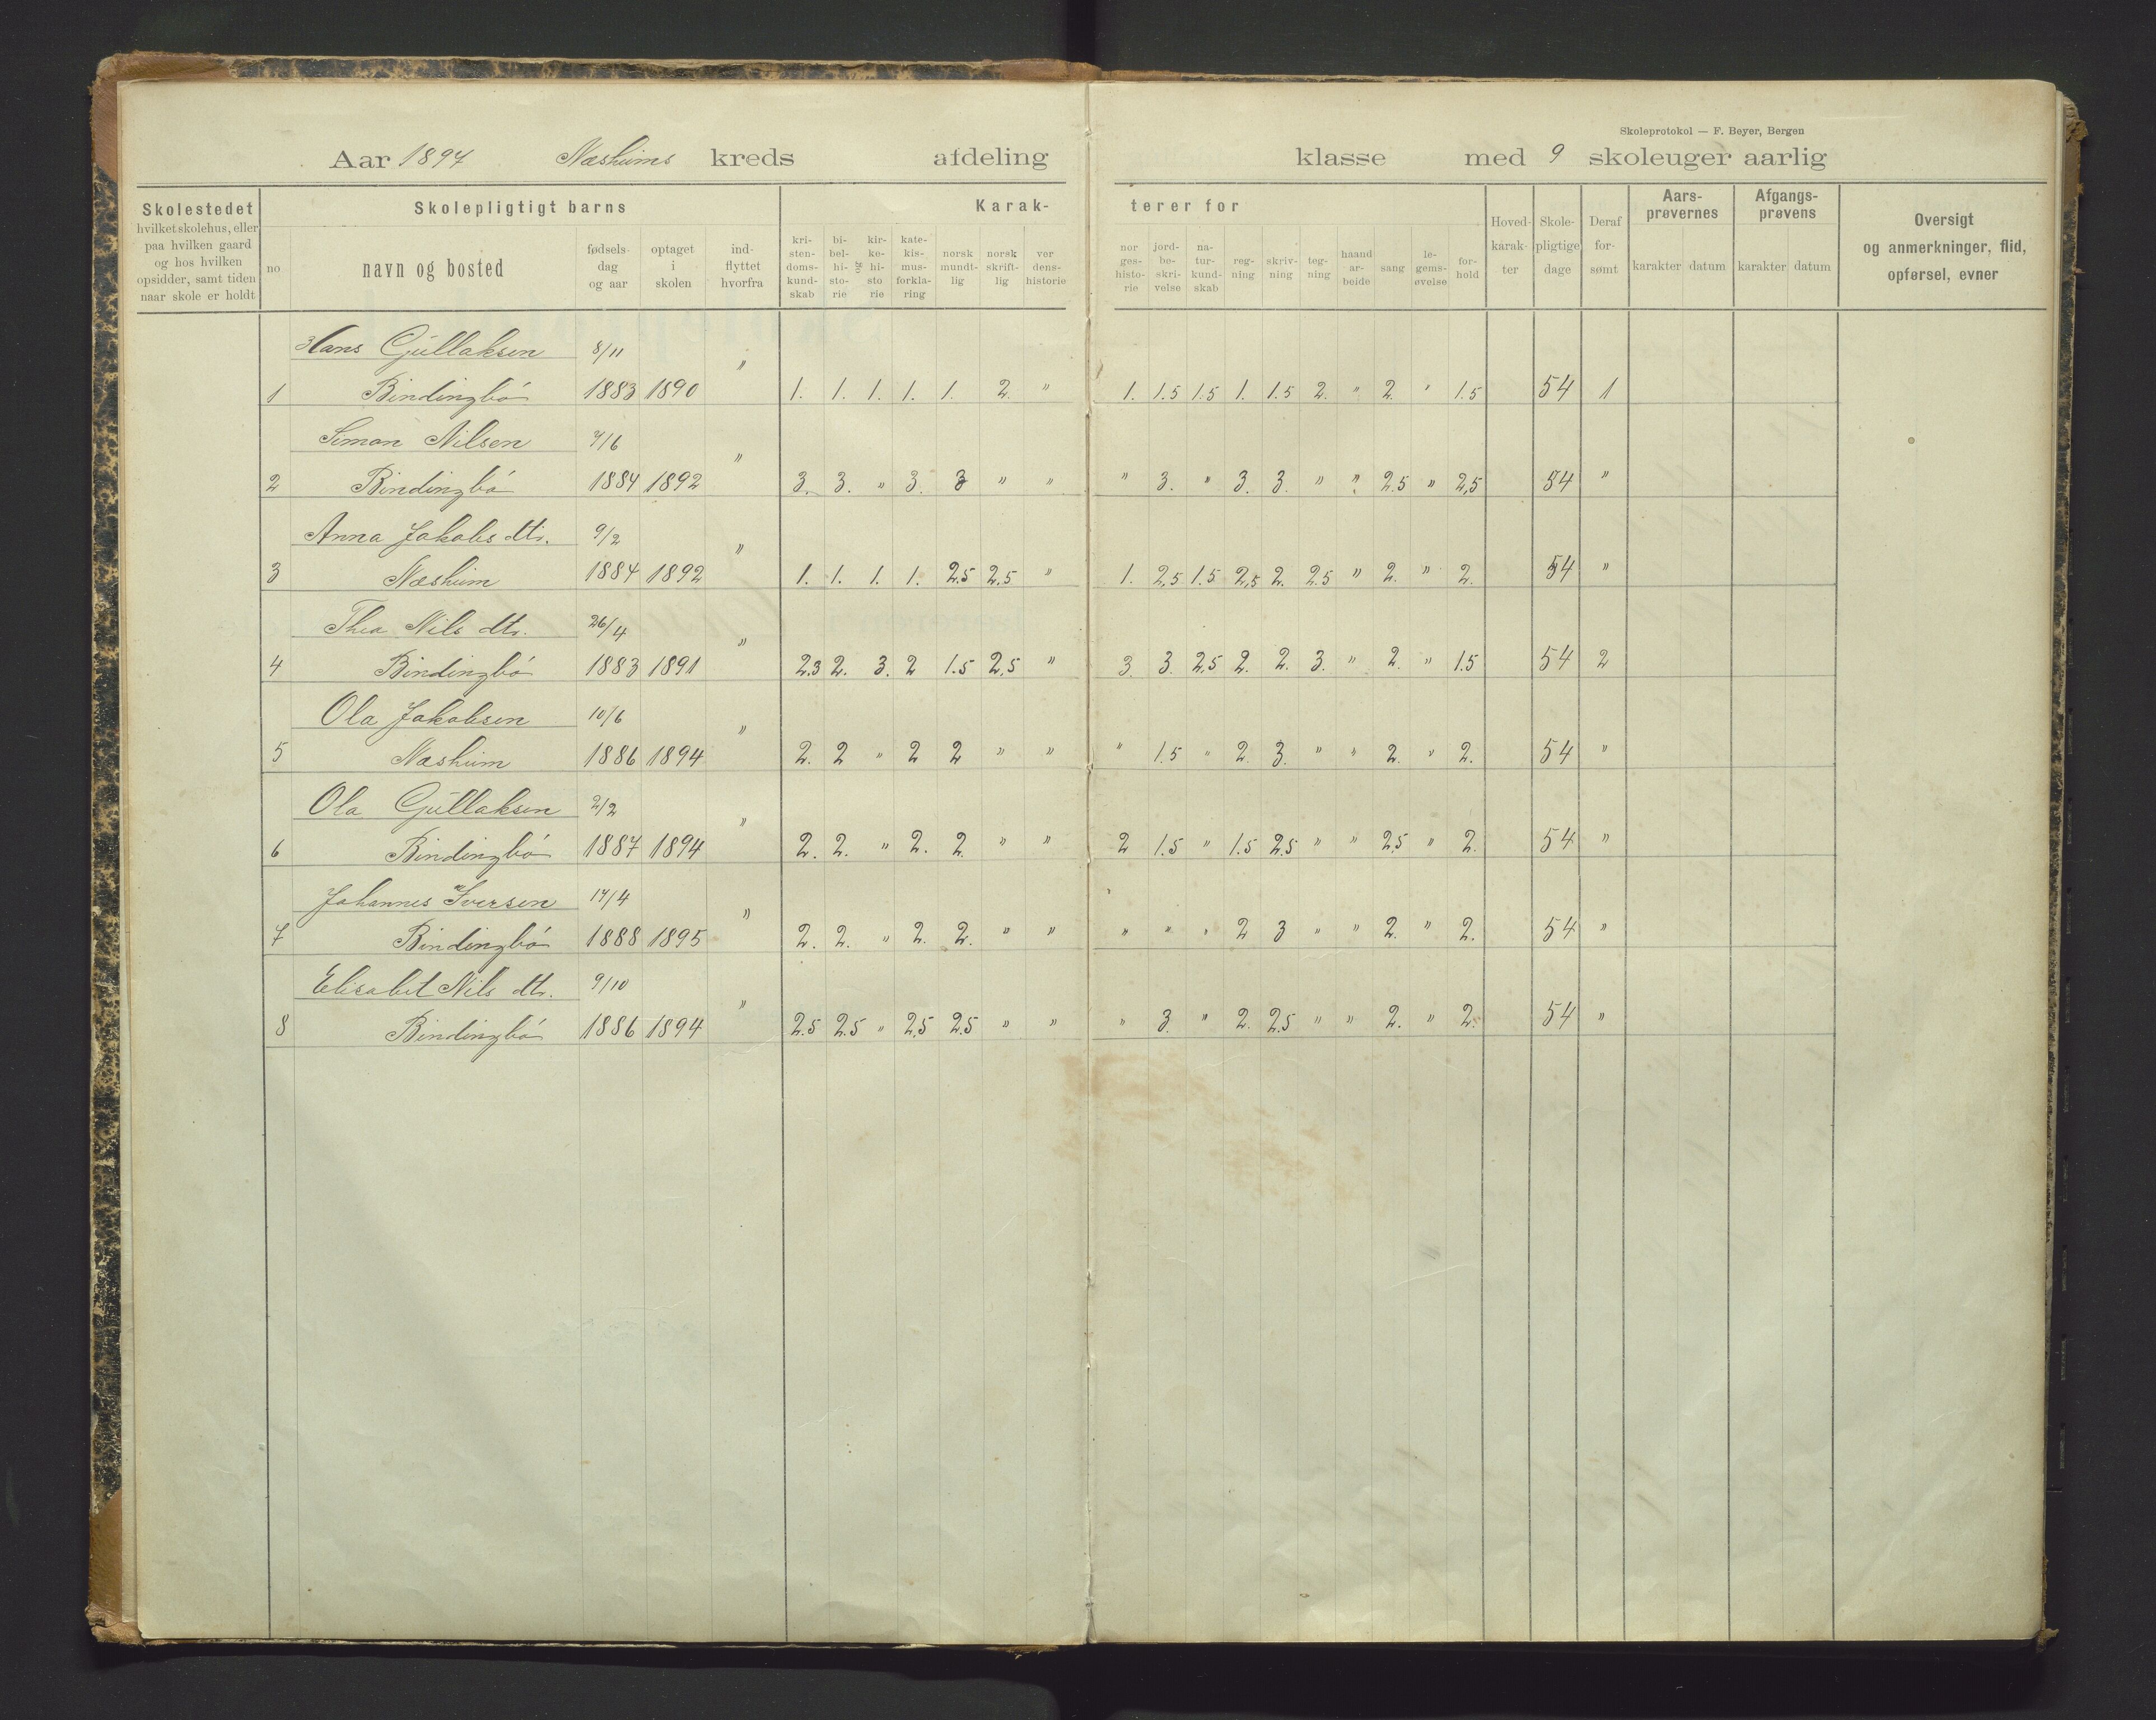 Skoleprotokol — F. Beyer, Bergen
Aar 1897 Næsheims kreds afdeling klasse med 9 skoleuger aarlig
Skolestedet
hvilket skolehus, eller
paa hvilken gaard
og hos hvilken
opsidder, samt tiden
naar skole er holdt
Skolepligtigt barns
no
navn og bosted
fødsels-
dag
og aar
optaget
i
skolen
ind-
flyttet
hvorfra
Karak-
terer for
kri-
sten-
doms-
kund-
skab
bi-
bel-
hi-
sto-
rie
og
kir-
ke-
hi-
sto
rie
kate-
kis-
mus-
forkla-
ring
norsk
mundt-
lig
norsk
skrift-
lig
ver
dens-
historie
nor
ges-
histo-
rie
jord-
be-
skri-
velse
na-
tur-
kund-
skab
reg-
ning
skriv-
ning
teg-
ning
haand
ar-
beide
sang
le-
gems-
øvelse
for-
hold
Hoved-
karak-
ter
Skole-
pligtige
dage
Deraf
for-
sømt
Aars-
prøvernes
karakter datum
Afgangs-
prøvens
karakter datum
Oversigt
og anmerkninger, flid,
opførsel, evner
Hans Gullaksen 8/11 "
1 Bindingbø 1883 1890 1. 1. 1. 1. 1. 2. " 1. 1.5 1.5 1. 1.5 2. " 2. " 1.5 54 1
Simon Nilsen 7/6 "
2 Bindingbø 1884 1892 3. 3. " 3. 3 " " " 3. " 3. 3. " " 2.5 " 2,5 54 "
Anna Jakobs dtr. 9/2 "
3 Næsheim 1884 1892 1. 1. 1. 1. 2.5 2.5 " 1. 2,5 1.5 2,5 2. 2.5 " 2. " 2. 54 "
Thea Nils dtr. 26/4 "
4 Bindingbø 1883 1891 2.3 2. 3. 2 1.5 2,5 " 3. 3. 2.5 2. 2. 3. " 2. " 1.5 54 2
Ola Jakobsen 10/6 "
5 Næsheim 1886 1894 2. 2 " 2 2 " " " 1.5 " 2. 3. " " 2. " 2. 54 "
Ola Gullaksen 2/2 "
6 Bindingbø 1887 1894 2. 2. " 2. 2. " " 2 1.5 " 1.5 2.5 " " 2.5 " 2. 54 "
Johannes Iversen 17/4 "
7 Bindingbø 1888 1895 2. 2. " 2. 2. " " " " " 2 3 " " 2. " 2. 54 "
Elisabet Nils dtr. 9/10 "
8 Bindingbø 1886 1894 2.5 2.5 " 2,5 2.5 " " " 3. " 2. 2.5 " " 2. " 2. 54 "